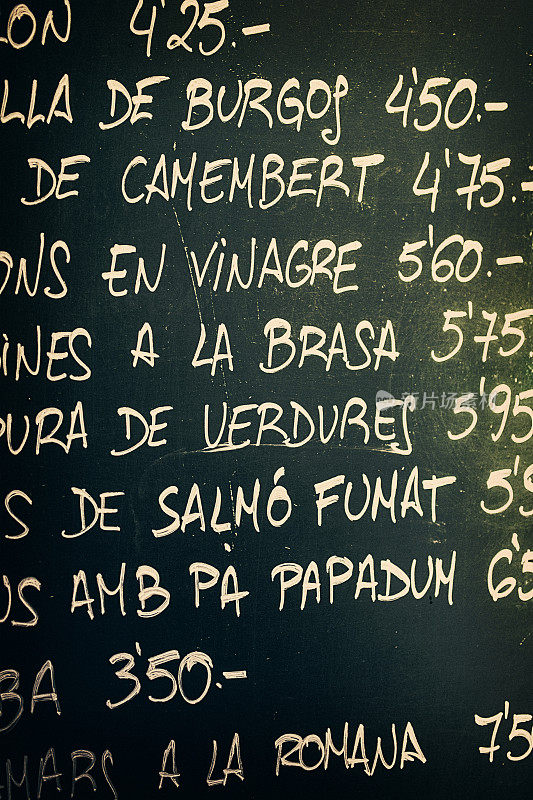 LON 4'25.-
LLA DE BURGOS 4'50.-
DE CAMEMBERT 4'75.-
ONS EN VINAGRE 5'60.-
INES A LA BRASA 5'75.
PURA DE VERDURES 5'95
S DE SALMÓ FUMAT 5'9
US AMB PA PAPADUM 6'5
BA 3'50.-
AMARS A LA ROMANA 7'5